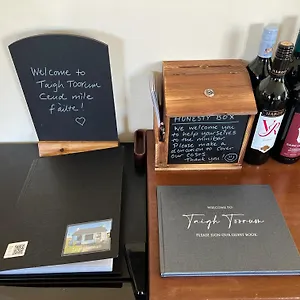 Welcome to
Taigh Toorum
Ceud mìle
fàilte!
HONESTY BOX
We welcome you
to help yourselves
to the minibar
Please make a
donation to cover
our costs
Thank you
WELCOME TO
Taigh Toorum
PLEASE SIGN OUR GUEST BOOK